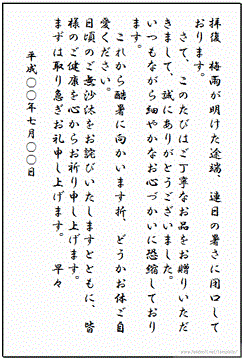 拝復　梅雨が明けた途端、連日の暑さに閉口して
おります。
　さて、このたびはご丁寧なお品をお贈りいただ
きまして、誠にありがとうございました。
いつもながら細やかなお心づかいに恐縮しており
ます。
　これから酷暑に向かいます折、どうかお体ご自
愛ください。
日頃のご無沙汰をお詫びいたしますとともに、皆
様のご健康を心からお祈り申し上げます。
まずは取り急ぎお礼申し上げます。　早々
平成〇〇年七月〇〇日